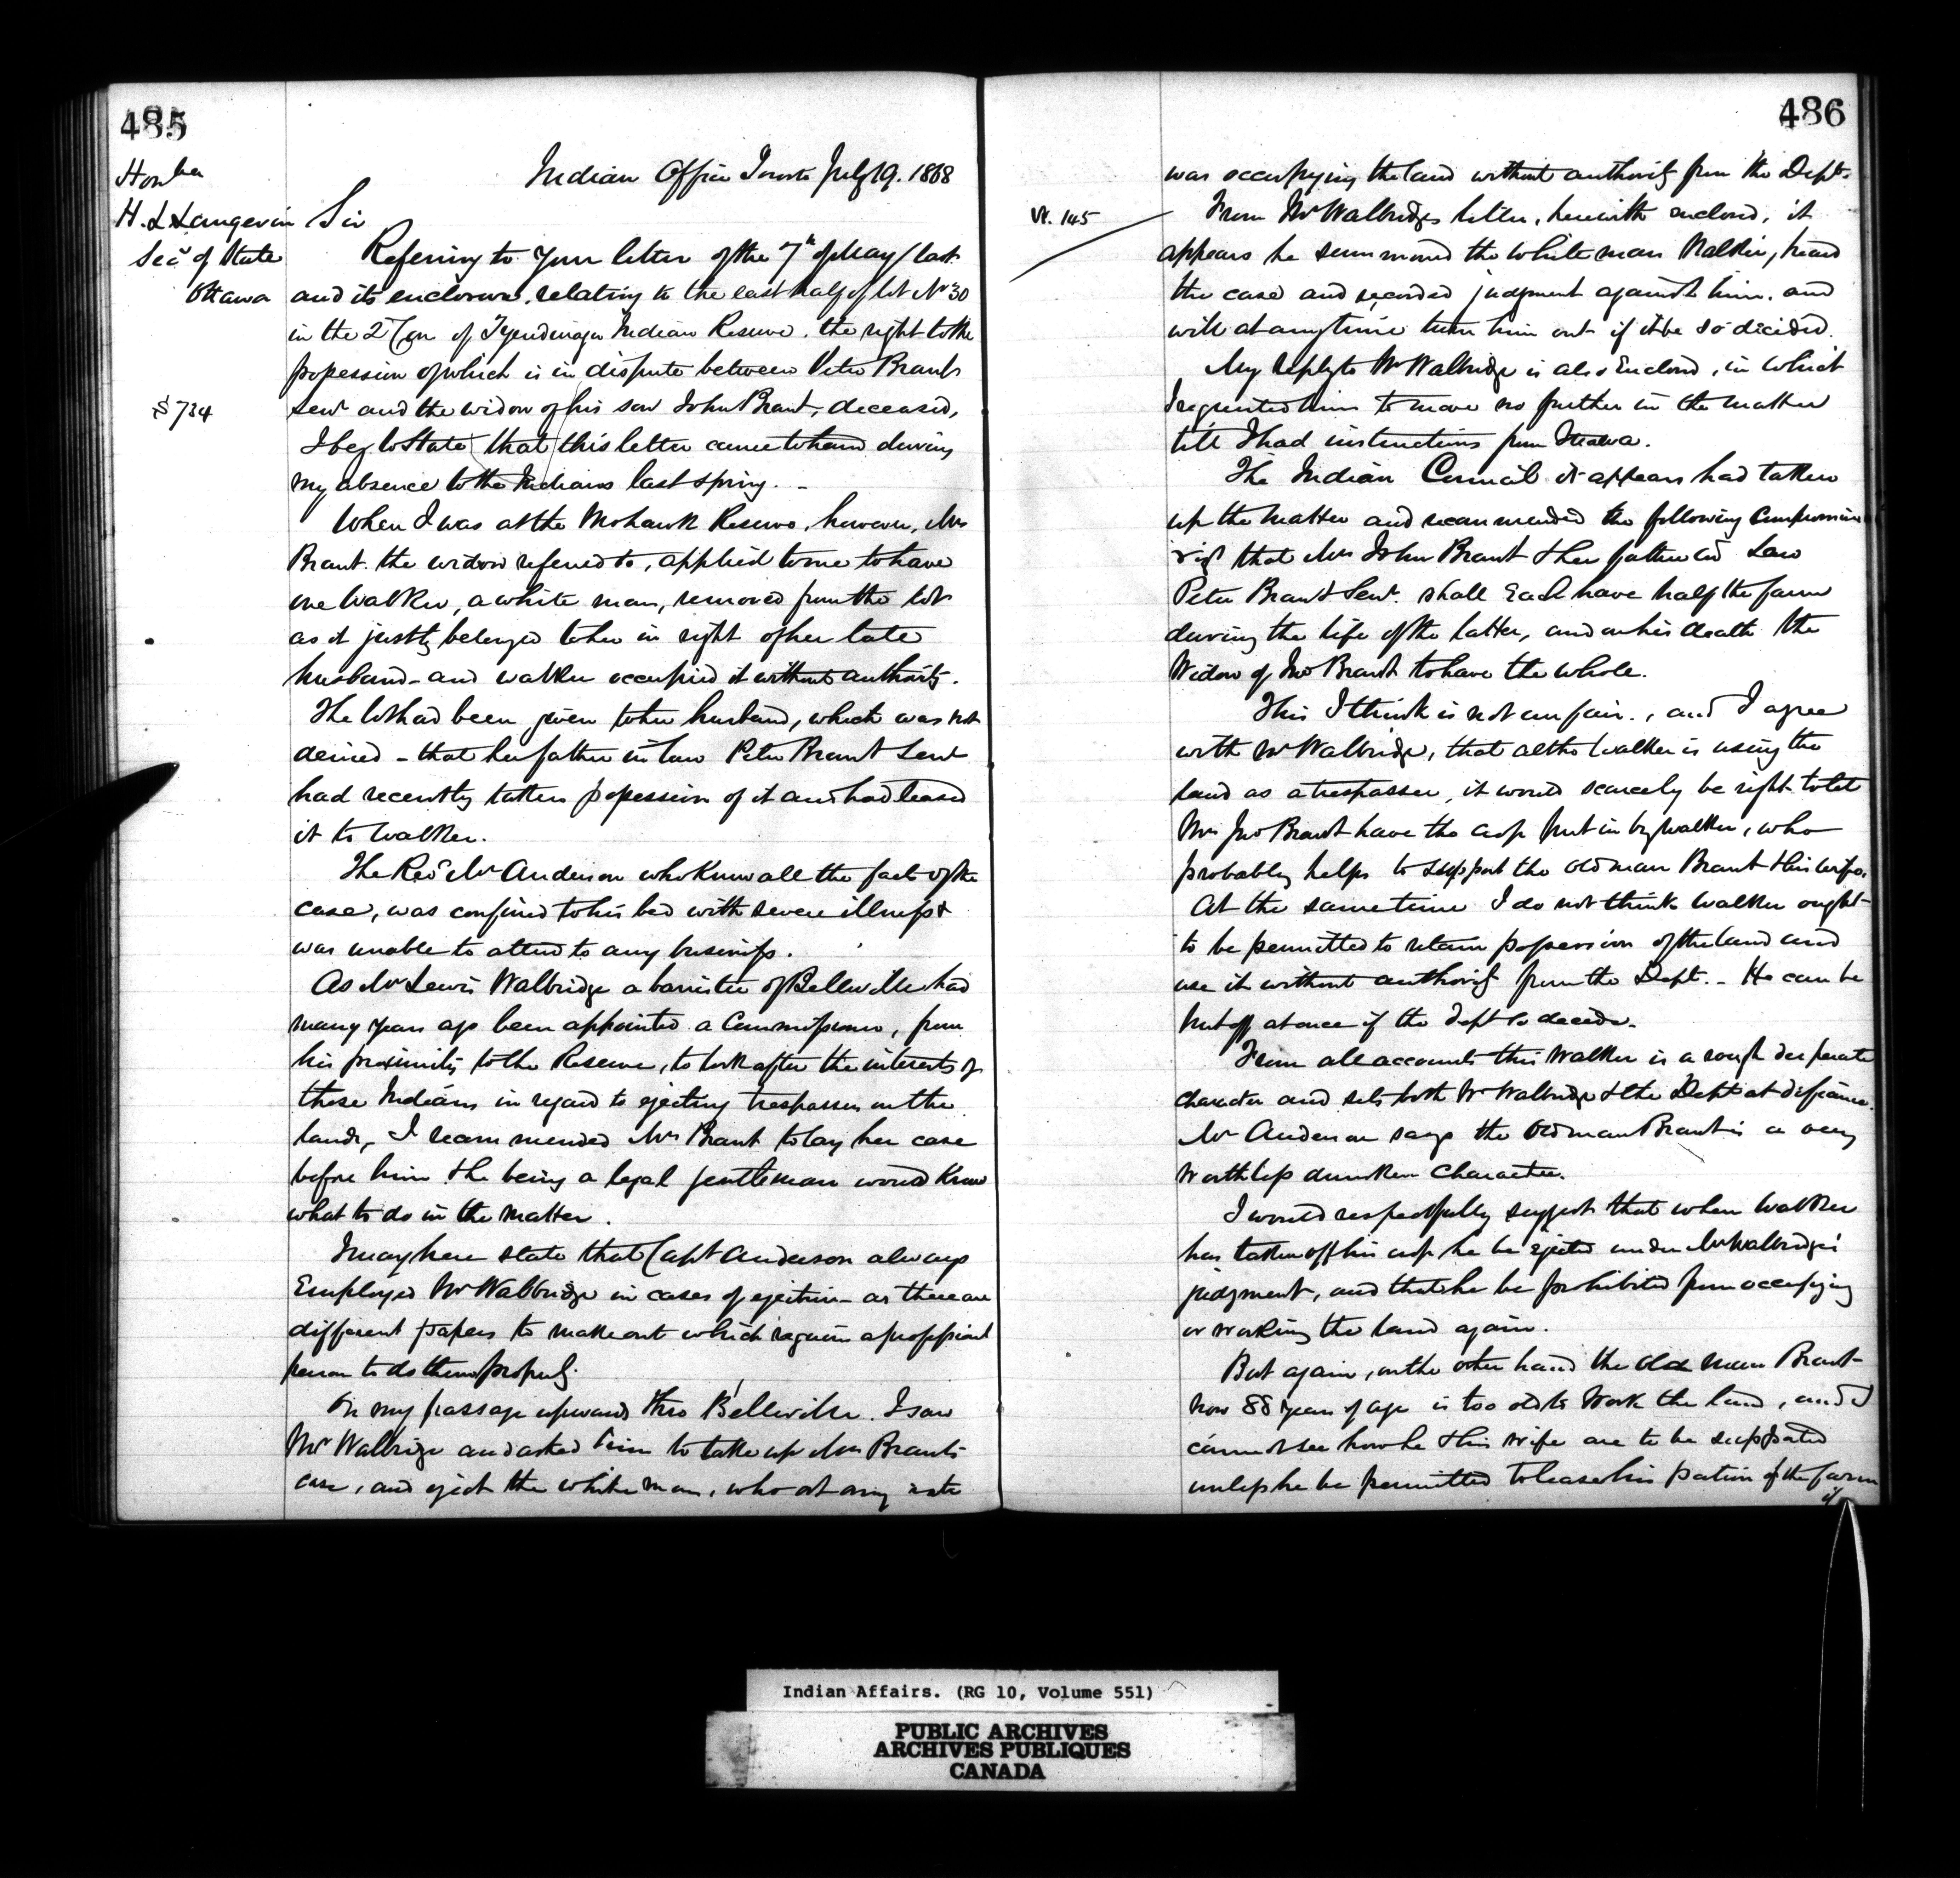 485
Honble
H. L Langevin
Secy of State
Ottawa
Indian Office Toronto July 19. 1868
Sir
Referring to your letter of the 7th of May last
and its enclosure, relating to the east half of lot No 30
in the 2d Con of Tyendinaga Indian Reserve, the right to the
possession of which is in dispute between Peter Brant
§ 734
Senr and the widow of his son John Brant, deceased,
I beg to State that this letter came to hand during
my absence to the Indians last spring. -
When I was at the Mohawk Reserve, however, Mrs
Brant. the widow referred to, applied to me to have
one Walker, a white man, removed from the lot
as it justly belonged to her in right of her late
husband - and Walker occupied it without authority.
The lot had been given to her husband, which was not
denied - that her father in law Peter Brant Senr
had recently taken possession of it and had leased
it to Walker.
The Revd Mr Anderson who knew all the facts of the
case, was confined to his bed with severe illness &
was unable to attend to any business.
As Mr Lewis Walbridge a barrister of Belleville had
many years ago been appointed a Commissioner, from
his proximity to the Reserve, to look after the interests of
these Indians in regard to ejecting trespassers on the
lands, I recommended Mrs Brant to lay her case
before him & he being a legal gentleman would know
what to do in the matter.
I may here state that Capt Anderson always
Employed Mr Walbridge in cases of ejection - as there are
different papers to make out which require a
person to do them properly.
On my passage upwards thro Belleville. I saw
Mr Walbridge and asked him to take up Mrs Brant's
case, and eject the white man, who at any rate
486
was occupying the land without authority from the Dept.
W. 145
From Mr Walbridges letter, herewith enclosed, it
appears he summoned the white man Walker, heard
the case and recorded judgment against him, and
will at any time turn him out if it be so decided.
My reply to Mr Walbridge is also Enclosed, in which
I requested him to move no further in the matter
till I had instructions from Ottawa.
The Indian Council it appears had taken
up the matter and recommended the following Compromise
vizt that Mrs John Brant & her father in Law
Peter Brant Senr. shall Each have half the farm
during the life of the latter, and on his death the
Widow of Jno Brant to have the whole.
This I think is not unfair., and I agree
with Mr Walbridge, that altho Walker is using the
land as a trespasser, it would scarcely be right to let
Mrs Jno Brant have the crop put in by Walker, who
probably helps to support the old man Brant & his wife.
At the same time I do not think Walker ought
to be permitted to retain possession of the land and
use it without authority from the Dept. - He can be
put off at once if the Dept so decide.
From all accounts this Walker is a rough desperate
character and sets both Mr Walbridge & the Dept at defiance.
Mr Anderson says the old man Brant is a very
worthless drunken Character.
I would respectfully suggest that when Walker
has taken off his crop he be ejected under Mr Walbridge's
judgment, and that he be prohibited from occupying
or working the land again.
But again, on the other hand the old man Brant
now 88 years of age is too old to Work the land, and I
cannot see how he & his wife are to be supported
unless he be permitted to lease his portion of the farm
if
Indian Affairs. (RG 10, Volume 551)
PUBLIC ARCHIVES
ARCHIVES PUBLIQUES
CANADA